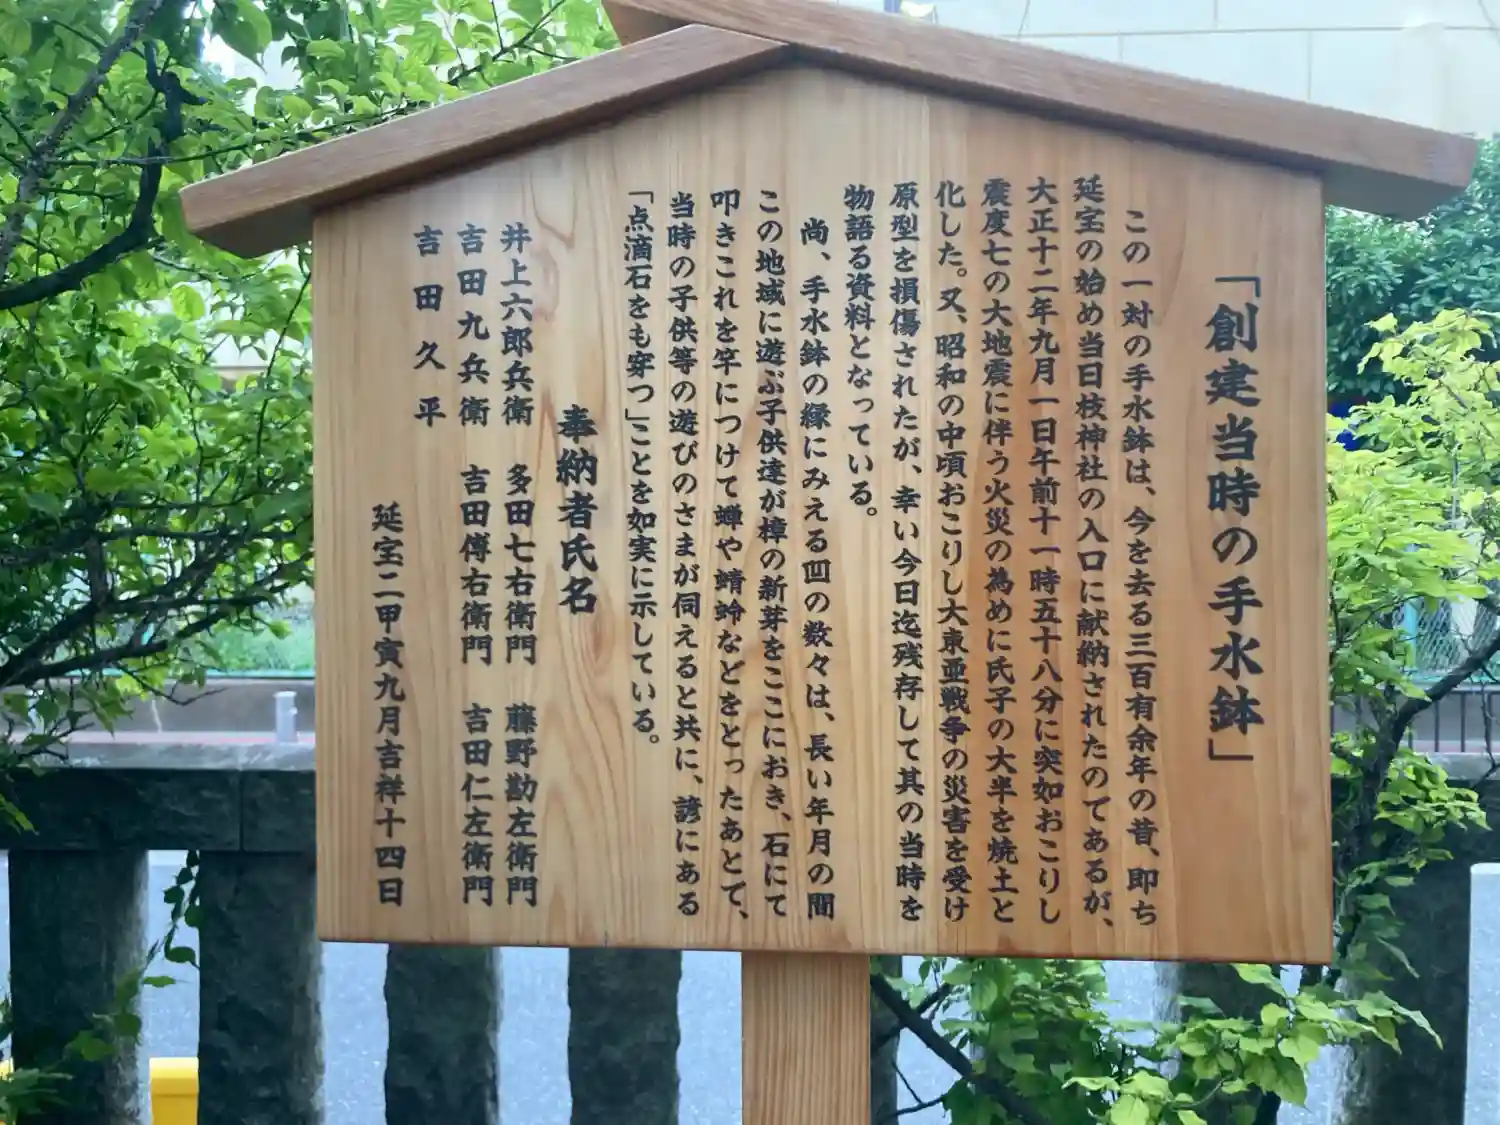 「創建当時の手水鉢」
この一対の手水鉢は、今を去る三百有余年の昔、即ち
延宝の始め当日枝神社の入口に献納されたのであるが、
大正十二年九月一日午前十一時五十八分に突如おこりし
震度七の大地震に伴う火災の為めに氏子の大半を焼土と
化した。又、昭和の中頃おこりし大東亜戦争の災害を受け
原型を損傷されたが、幸い今日迄残存して其の当時を
物語る資料となっている。
尚、手水鉢の縁にみえる凹の数々は、長い年月の間
この地域に遊ぶ子供達が樟の新芽をここにおき、石にて
叩きこれを竿につけて蝉や蜻蛉などをとったあとで、
当時の子供等の遊びのさまが伺えると共に、諺にある
「点滴石をも穿つ」ことを如実に示している。
奉納者氏名
井上六郎兵衛 多田七右衛門 藤野勘左衛門
吉田九兵衛 吉田傅右衛門 吉田仁左衛門
吉田久平
延宝二甲寅九月吉祥十四日